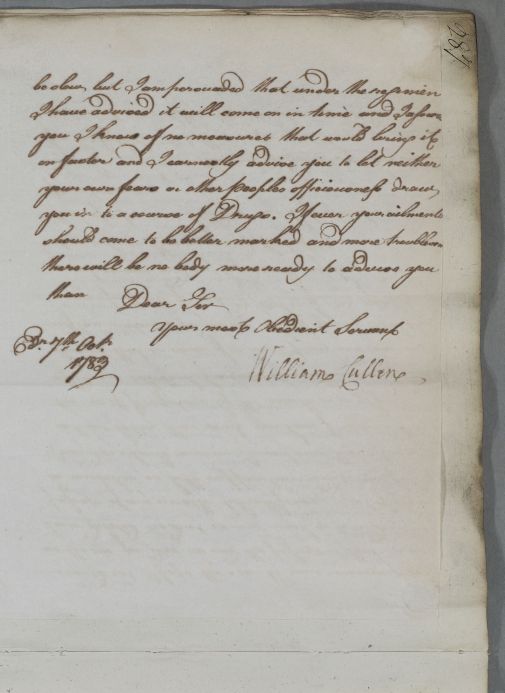 186
be slow, but I am perswaded that under the regimen
I have advised it will come on in time and I assure
you I know of no measures that would bring it
on faster and I earnestly advise you to let neither
your own fears or other peoples officiousness draw
you in to a course of Drugs. If ever your ailments
should come to be better marked and more troublesom
there will be no body more ready to advise you
than Dear Sir
Your most Obedient Servant
Edr. 7th Octr.
1783
William Cullen